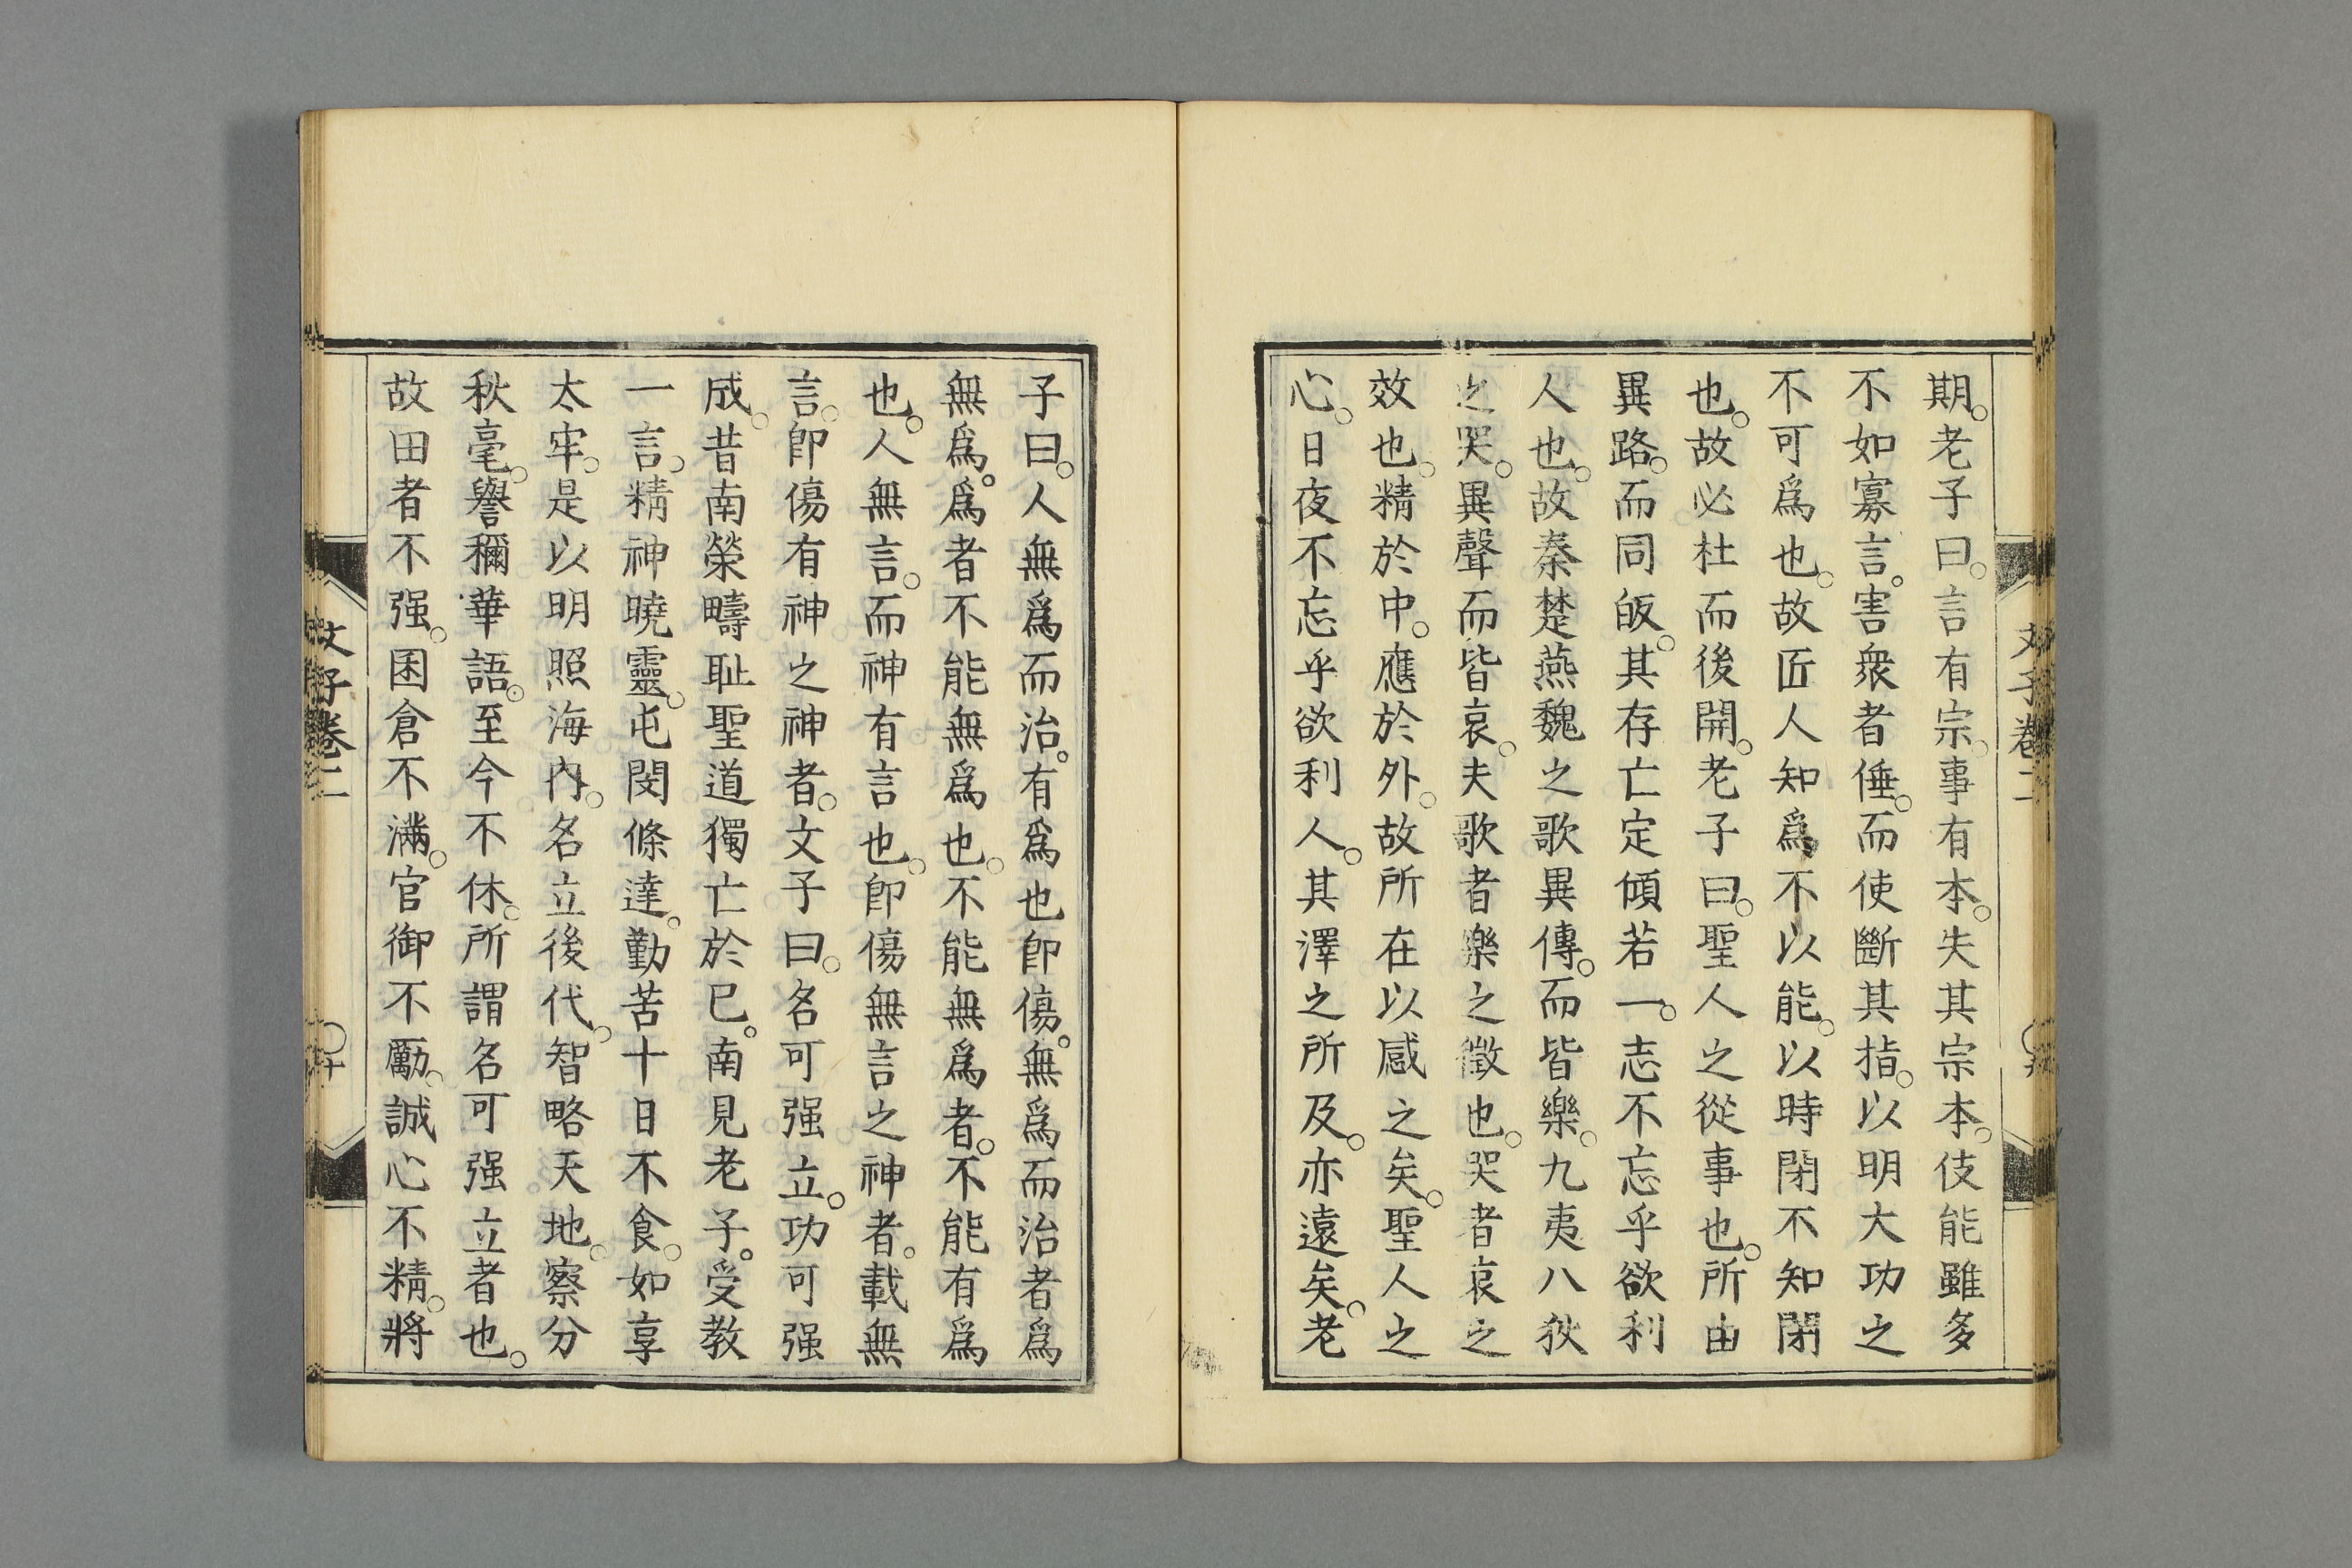 期。老子曰。言有宗。事有本。失其宗本。伎能雖多
不如寡言。害衆者倕。而使斷其指。以明大功之
不可爲也。故匠人知爲不以能。以時閉不知閉
也。故必杜而後開。老子曰。聖人之從事也。所由
異路。而同皈。其存亡定傾若一。志不忘乎欲利
人也。故秦楚燕魏之歌異傳。而皆樂。九夷八狄
之哭。異聲而皆哀。夫歌者樂之徵也。哭者哀之
效也。精於中。應於外。故所在以感之矣。聖人之
心。日夜不忘乎欲利人。其澤之所及。亦遠矣。老
子曰。人無爲而治。有爲也卽傷。無爲而治者爲
無爲。爲者不能無爲也。不能無爲者。不能有爲
也。人無言。而神有言也。卽傷無言之神者。載無
言。卽傷有神之神者。文子曰。名可强立。功可强
成。昔南榮疇耻聖道獨亡於已。南見老子。受敎
一言。精神曉靈。屯閔條達。勤苦十日不食。如享
太牢。是以明照海內。名立後代。智略天地。察分
秋毫。譽稱華語。至今不休。所謂名可强立者也。
故田者不强。困倉不滿。官御不勵。誠心不精。將
文子卷二
文子卷二 十